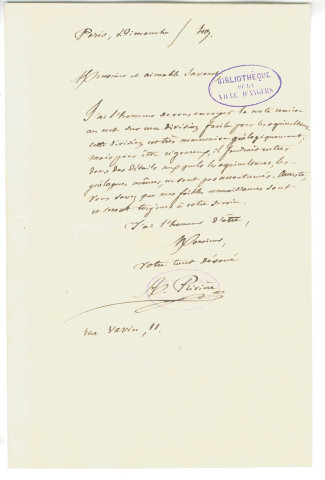 Paris, Dimanche /
Monsieur et aimable Savant
BIBLIOTHÈQUE
DE LA
VILLE D'ANGERS
J'ai l'honneur de vous envoyer la note remise
au net sur une division facile pour les agriculteurs,
cette division est très mauvaise géologiquement;
mais pour être rigoureux, il faudrait entrer
dans des détails auxquels les agriculteurs, les
géologues mêmes, ne sont pas accoutumés. Au reste,
vous savez que mes faibles connaissances sont
et seront toujours à votre service.
J'ai l'honneur d'être,
Monsieur,
votre tout dévoué
A. Rivière
rue Vavin, 11.